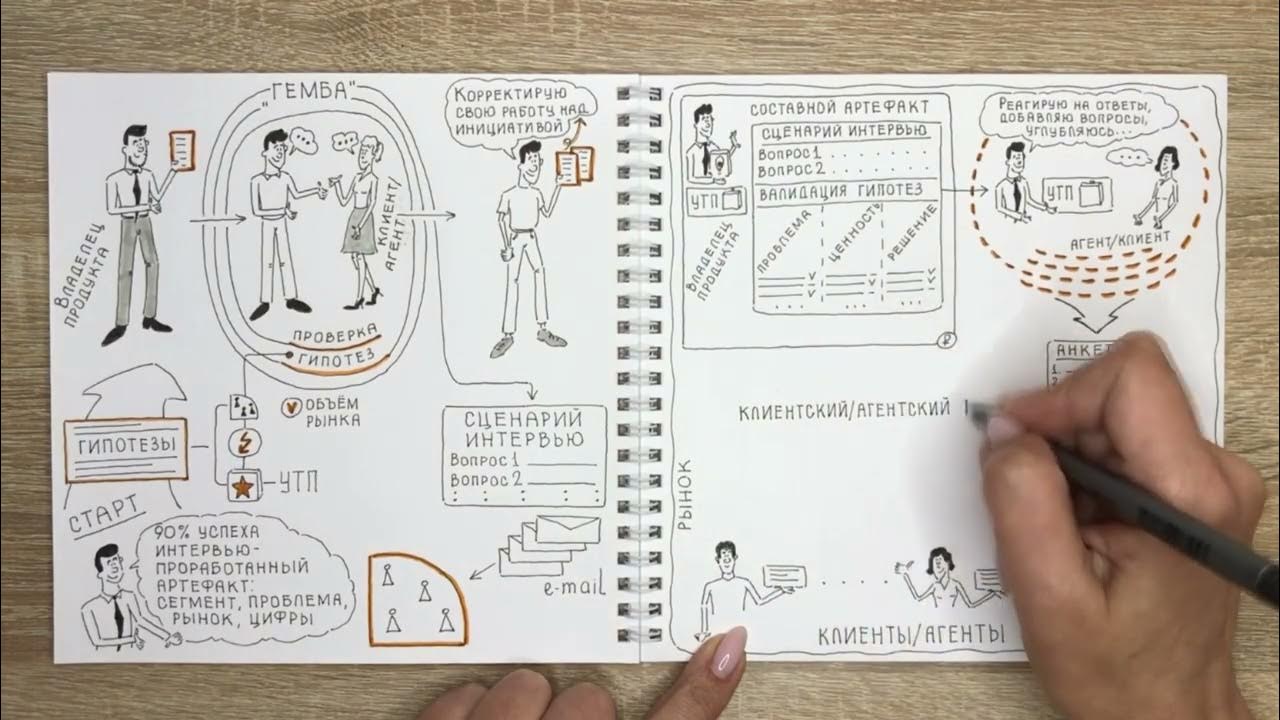 "ГЕМБА"
ВЛАДЕЛЕЦ
ПРОДУКТА
КЛИЕНТ/
АГЕНТ
ПРОВЕРКА
ГИПОТЕЗ
КОРРЕКТИРУЮ
СВОЮ РАБОТУ НАД
ИНИЦИАТИВОЙ
ГИПОТЕЗЫ
ОБЪЁМ
РЫНКА
УТП
СТАРТ
СЦЕНАРИЙ
ИНТЕРВЬЮ
ВОПРОС 1
ВОПРОС 2
90% УСПЕХА
ИНТЕРВЬЮ-
ПРОРАБОТАННЫЙ
АРТЕФАКТ:
СЕГМЕНТ, ПРОБЛЕМА,
РЫНОК, ЦИФРЫ
e-mail
СОСТАВНОЙ АРТЕФАКТ
СЦЕНАРИЙ ИНТЕРВЬЮ
ВОПРОС 1
ВОПРОС 2
ВАЛИДАЦИЯ ГИПОТЕЗ
ПРОБЛЕМА
ЦЕННОСТЬ
РЕШЕНИЕ
УТП
ВЛАДЕЛЕЦ
ПРОДУКТА
РЕАГИРУЮ НА ОТВЕТЫ,
ДОБАВЛЯЮ ВОПРОСЫ,
УГЛУБЛЯЮСЬ...
УТП
АГЕНТ/КЛИЕНТ
АНКЕТ
1.
2
КЛИЕНТСКИЙ/АГЕНТСКИЙ
РЫНОК
КЛИЕНТЫ/АГЕНТЫ